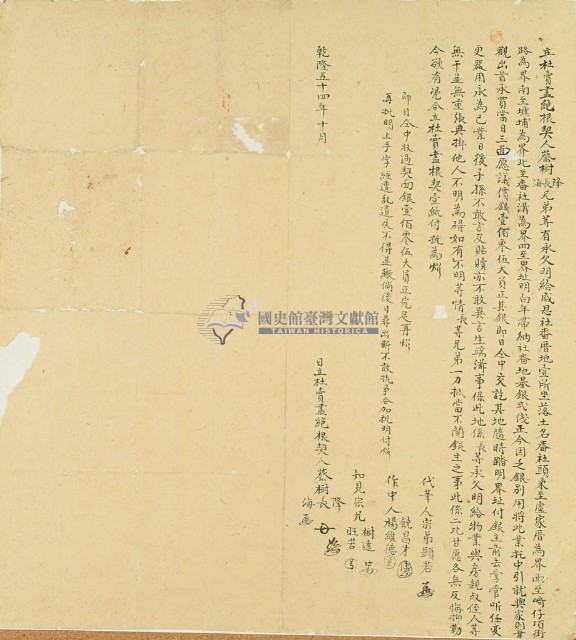 立杜賣盡絕根契人蔡樹長隆海兄弟等有承父明給感恩社番厝地壹所坐落土名番社頭東至盧家厝為界西至崎仔項街
路為界南至墟埔為界北至番社溝為界四至界址明白年帶納社番地基銀弍錢正今因乏銀別用將此業托中引就與家
觀出首承買當日三面愿議價錢壹佰零伍大員正其銀即日仝中交訖其地隨時踏明界址付銀主前去掌管听任愛
更器用永為已業日後子孫不敢言及貼贖亦不敢異言生端滋事保此地係長等承父明給物業與房親叔侄人等
無干並無重張典掛他人不明為碍如有不明等情長等兄弟一力抵當不關銀主之事此係二比甘愿各無反悔抑勒
今欲有憑合立杜賣盡根契壹紙付執為炤
即日仝中收過契面銀壹佰零伍大員正完足再炤
再批明上手字經遭亂遺失不得並繳倘後日尋出斷不敢執爭合加批明付炤
代筆人宗弟顯若
饒昌才
作中人楊維德
樹遠
知見宗兄
旺若
日立杜賣盡絕根契人蔡樹長隆海
乾隆五十四年十月
國史館臺灣文獻館
TAIWAN HISTORICA